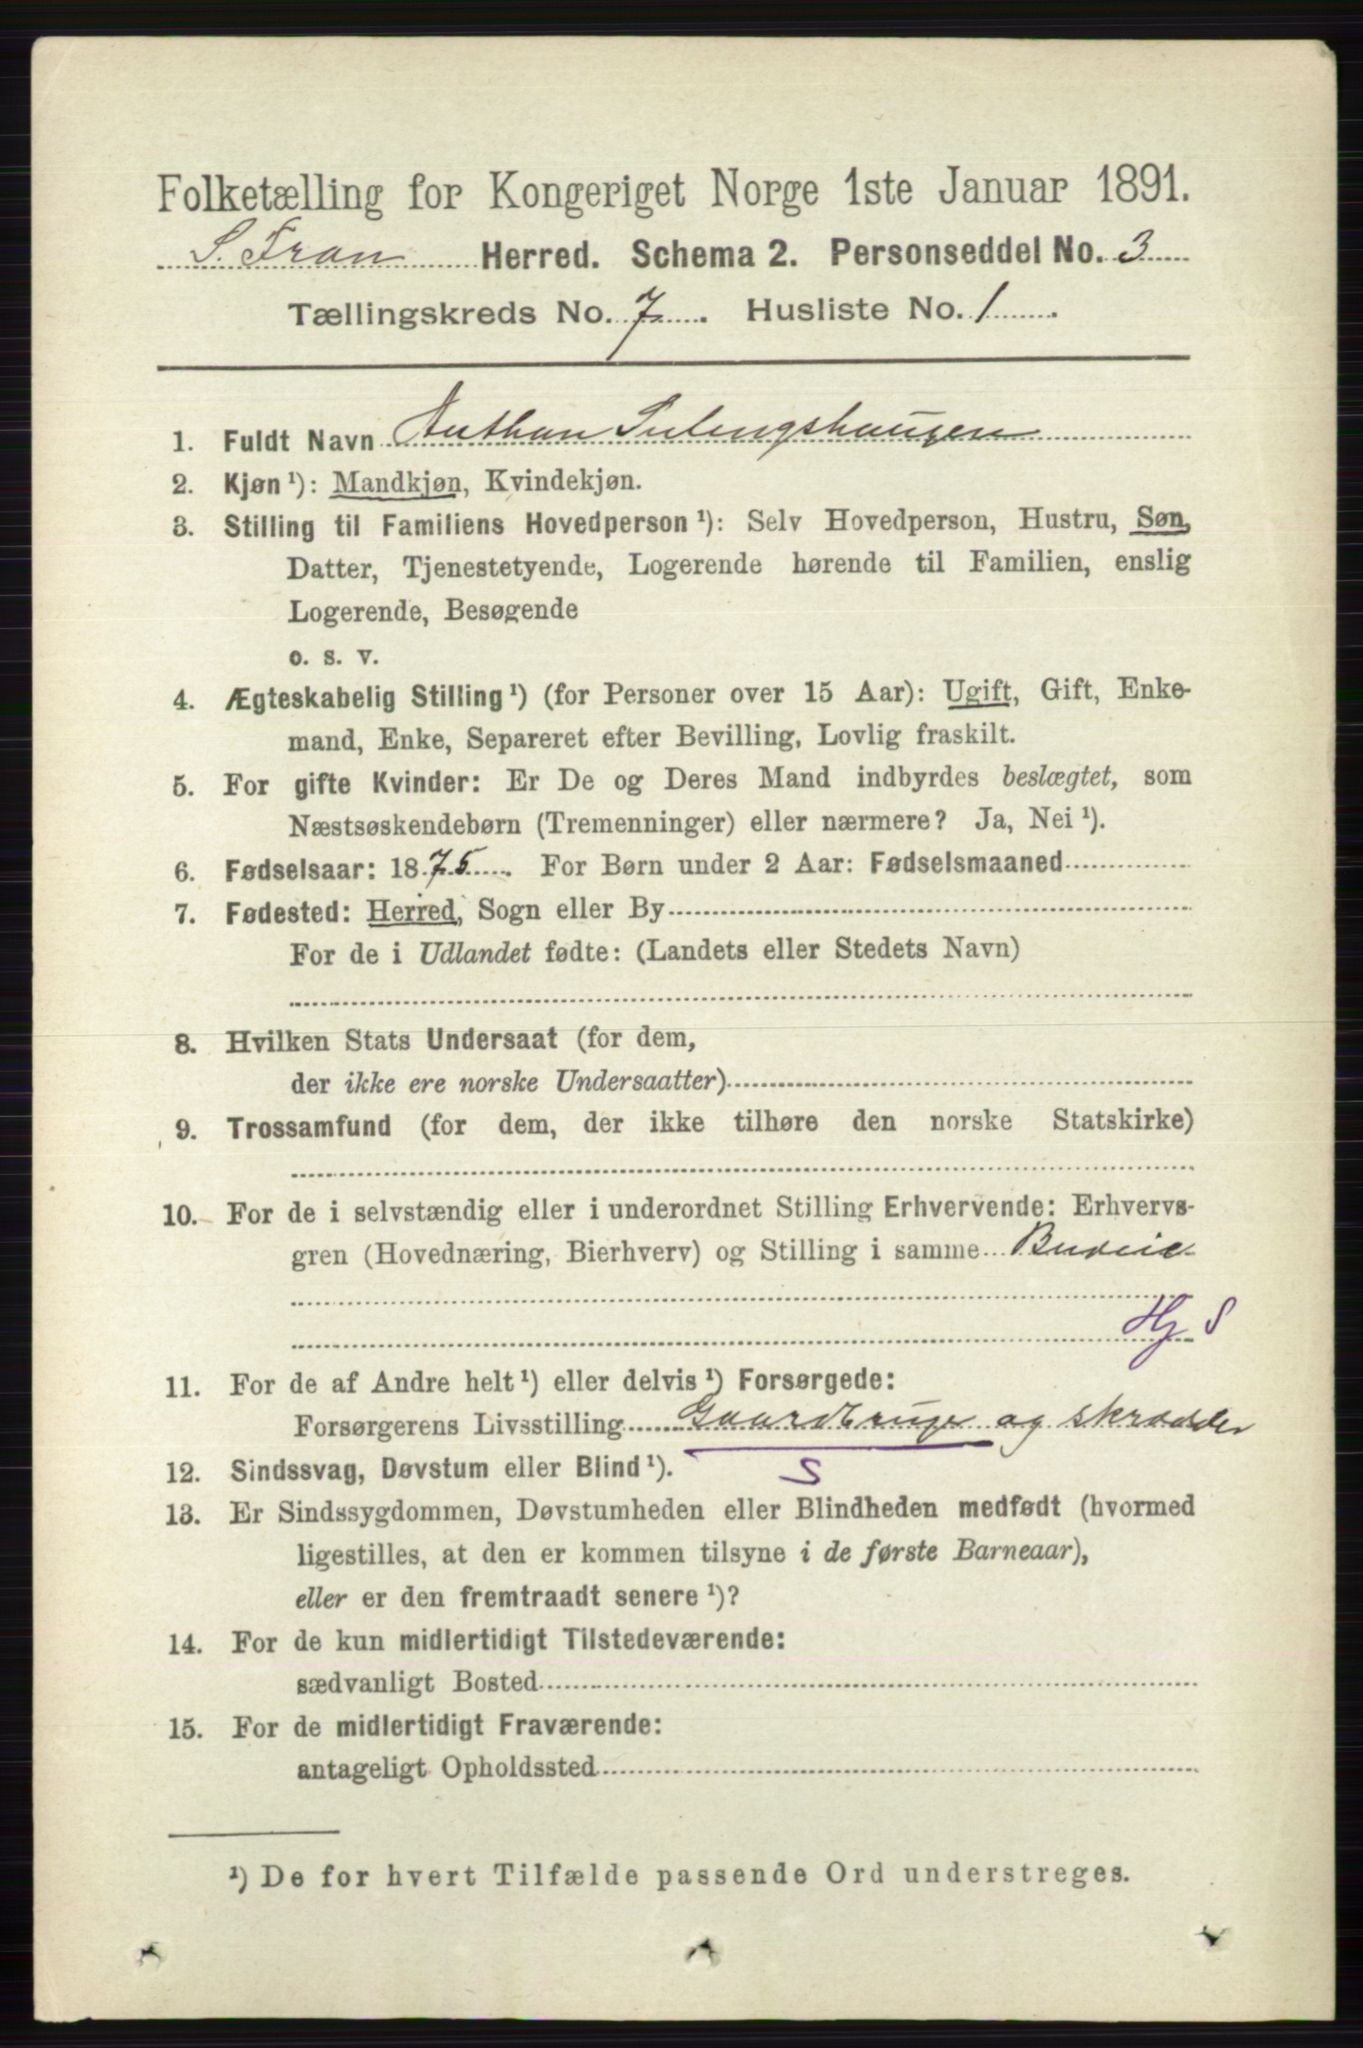 Folketælling for Kongeriget Norge 1ste Januar 1891.
S. Fron Herred. Schema 2. Personseddel No. 3
Tællingskreds No. 7. Husliste No. 1.
1. Fuldt Navn
2. Kjøn ¹): Mandkjøn, Kvindekjøn.
3. Stilling til Familiens Hovedperson ¹): Selv Hovedperson, Hustru, Søn,
Datter, Tjenestetyende, Logerende hørende til Familien, enslig
Logerende, Besøgende
o. s. v.
4. Ægteskabelig Stilling ¹) (for Personer over 15 Aar): Ugift, Gift, Enke-
mand, Enke, Separeret efter Bevilling, Lovlig fraskilt.
5. For gifte Kvinder: Er De og Deres Mand indbyrdes beslægtet, som
Næstsøskendebørn (Tremenninger) eller nærmere? Ja, Nei ¹).
6. Fødselsaar: 1875. For Børn under 2 Aar: Fødselsmaaned
7. Fødested: Herred, Sogn eller By
For de i Udlandet fødte: (Landets eller Stedets Navn)
8. Hvilken Stats Undersaat (for dem,
der ikke ere norske Undersaatter)
9. Trossamfund (for dem, der ikke tilhøre den norske Statskirke)
10. For de i selvstændig eller i underordnet Stilling Erhvervende: Erhvervs-
gren (Hovednæring, Bierhverv) og Stilling i samme
Hj S
11. For de af Andre helt ¹) eller delvis ¹) Forsørgede:
Forsørgerens Livsstilling Gaardbruger og skrædder
12. Sindssvag, Døvstum eller Blind ¹). S
13. Er Sindssygdommen, Døvstumheden eller Blindheden medfødt (hvormed
ligestilles, at den er kommen tilsyne i de første Barneaar),
eller er den fremtraadt senere ¹)?
14. For de kun midlertidigt Tilstedeværende:
sædvanligt Bosted
15. For de midlertidigt Fraværende:
antageligt Opholdssted
¹) De for hvert Tilfælde passende Ord understreges.